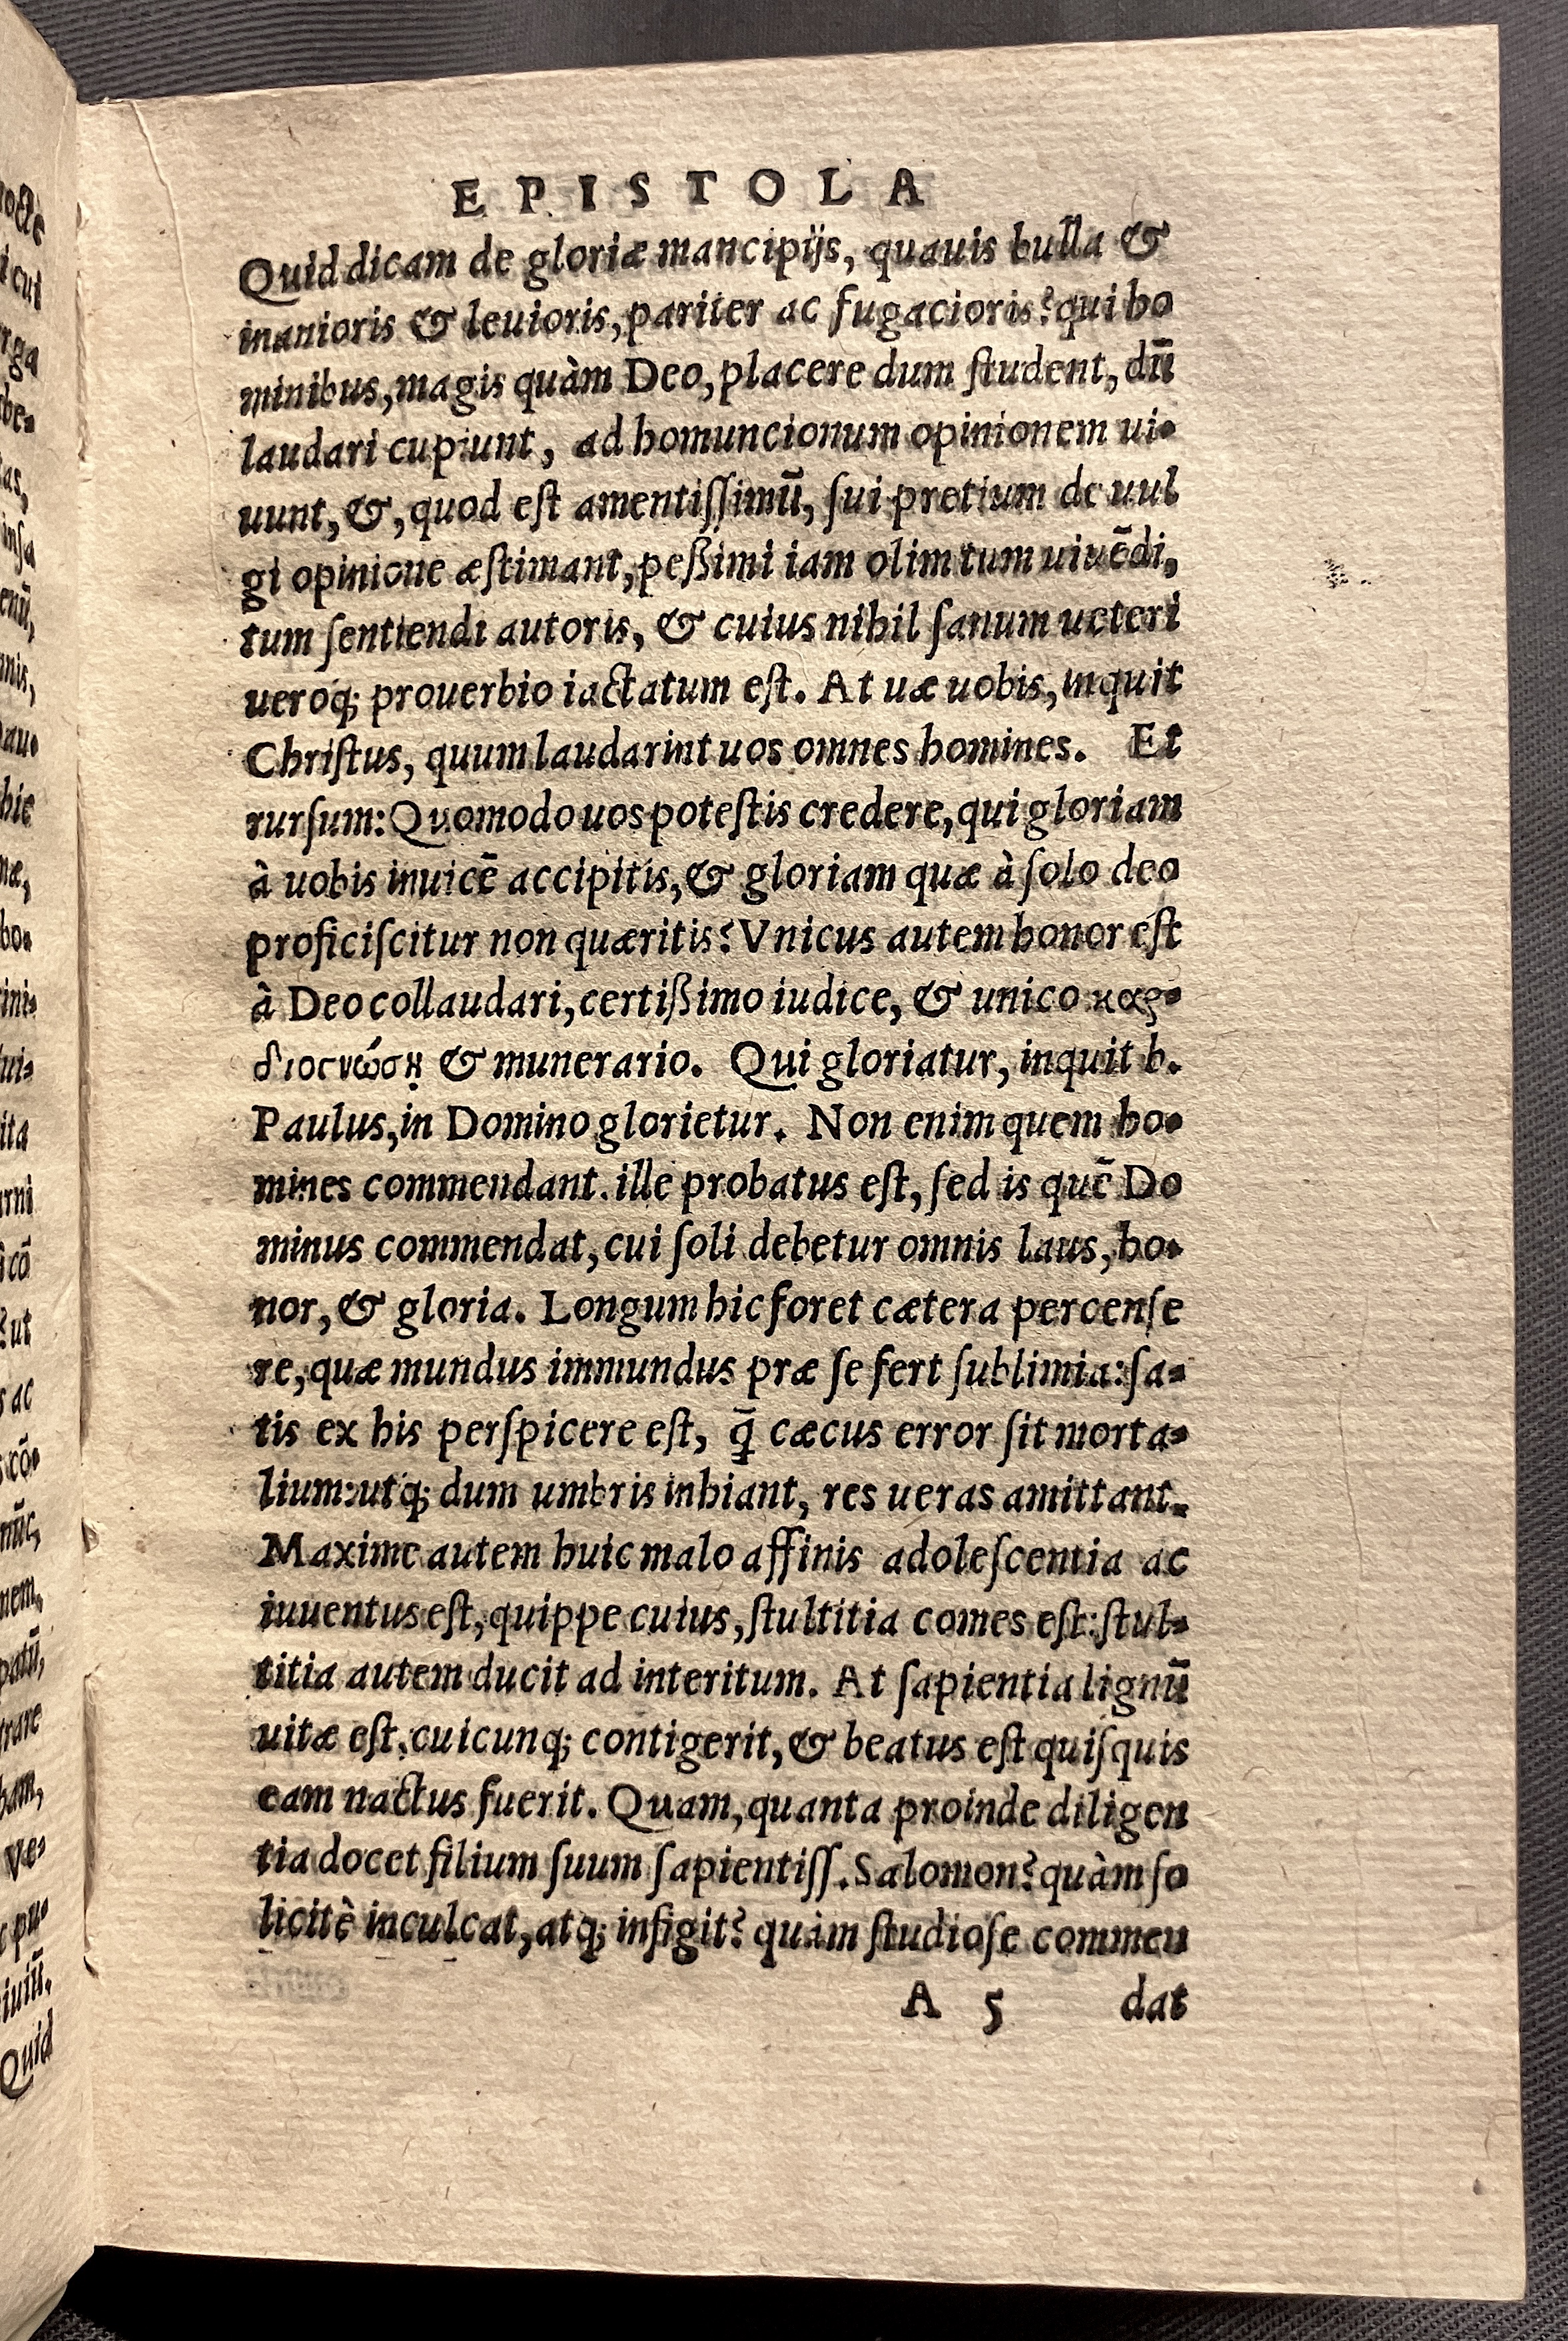 EPISTOLA
Quid dicam de gloriæ mancipijs, quauis bulla &
inanioris & leuioris, pariter ac fugacioris? qui ho
minibus, magis quàm Deo, placere dum ſtudent, dū
laudari cupiunt, ad homuncionum opinionem ui-
uunt, &, quod eſt amentiſſimū, ſui pretium de uul
gi opinione æſtimant, peßimi iam olim tum uiuēdi,
tum ſentiendi autoris, & cuius nihil ſanum ueteri
ueroq; prouerbio iactatum eſt. At uæ uobis, inquit
Chriſtus, quum laudarint uos omnes homines. Et
rurſum: Quomodo uos poteſtis credere, qui gloriam
à uobis inuicē accipitis, & gloriam quæ à ſolo deo
proficiſcitur non quæritis? Vnicus autem honor eſt
à Deo collaudari, certißimo iudice, & unico καρ-
διογνώςῃ & munerario. Qui gloriatur, inquit b.
Paulus, in Domino glorietur. Non enim quem ho-
mines commendant. ille probatus eſt, ſed is quē Do
minus commendat, cui ſoli debetur omnis laus, ho-
nor, & gloria. Longum hic foret cætera percenſe
re, quæ mundus immundus præ ſe fert ſublimia: ſa-
tis ex his perſpicere eſt, q̄ cæcus error ſit morta-
lium: utq; dum umbris inhiant, res ueras amittant.
Maxime autem huic malo affinis adoleſcentia ac
iuuentus eſt, quippe cuius, ſtultitia comes eſt: ſtul-
titia autem ducit ad interitum. At ſapientia lignū
uitæ eſt, cuicunq; contigerit, & beatus eſt quiſquis
eam nactus fuerit. Quam, quanta proinde diligen
tia docet filium ſuum ſapientiſſ. Salomon? quàm ſo
licitè inculcat, atq; infigit? quàm ſtudioſe commen
A 5 dat